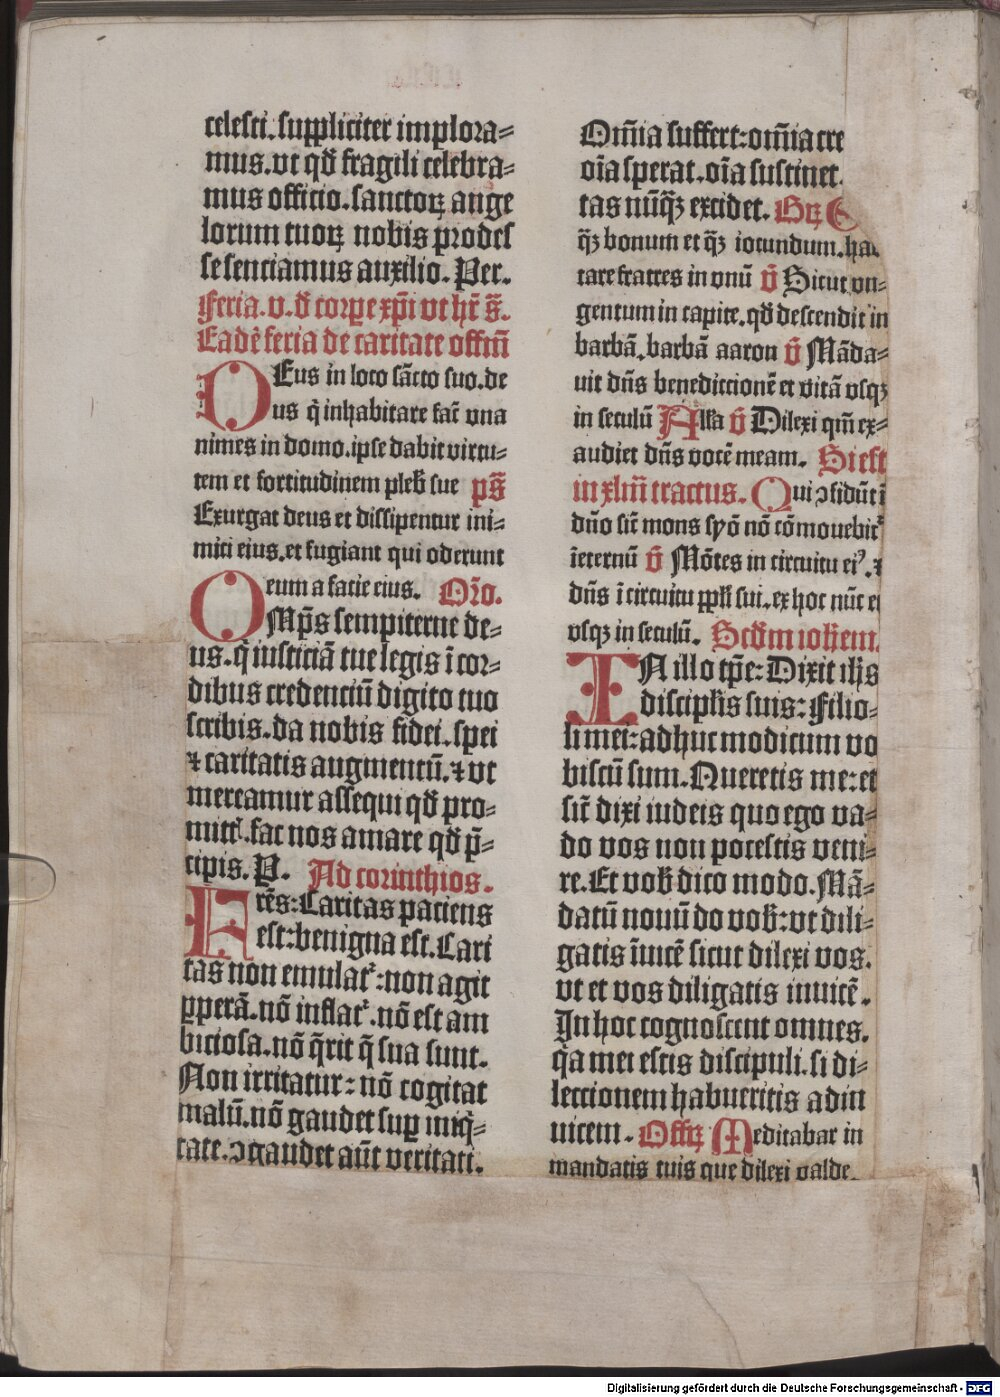 celesti. suppliciter implora⸗
mus. vt qđ fragili celebra⸗
mus officio. sanctoꝝ ange
lorum tuoꝝ nobis prodes
se senciamus auxilio. Per.
Feria. v. đ corpe xp̄i vt hr̄ s̄.
Eadē feria de caritate offm̄
DEus in loco sācto suo. de
us q̇ inhabitare fac̄ vna
nimes in domo. ipse dabit virtu⸗
tem et fortitudinem pleb̄ sue ps̄
Exurgat deus et dissipentur ini⸗
mici eius. et fugiant qui oderunt
eum a facie eius. Oro̅.
OMp̄s sempiterne de⸗
us. q̇ iusticiā tue legis ī cor⸗
dibus credenciū digito tuo
scribis. da nobis fidei. spei
⁊ caritatis augmentū. ⁊ vt
mereamur assequi qđ pro⸗
mittꝭ. fac nos amare qđ p̄⸗
cipis. P. Ad corinthios.
FRēs: Caritas paciens
est: benigna est. Cari
tas non emulaťˀ: non agit
ꝑperā. nō inflaťˀ. nō est am
biciosa. nō q̄rit q̄ sua sunt.
Non irritatur: nō cogitat
malū. nō gaudet suꝑ iniq̇⸗
tate. ↄgaudet aūt veritati.
Om̄ia suffert: om̄ia cre
oīa sperat. oīa sustinet.
tas nūqꝫ excidet. Grꝫ
qꝫ bonum et qꝫ iocundum. ha
tare fratres in vnū v̄ Sicut vn⸗
gentum in capite. qđ descendit in
barbā. barbā aaron v̄ Māda⸗
uit dn̄s benediccionē et vitā vsqꝫ
in seculū Alla v̄ Dilexi qm̄ ex⸗
audiet dn̄s vocē meam. Si est
in xlm̄ tractus. Qui ↄfidūt ī
dn̄o sic̄ mons syō nō cōmouebitˀ
īeternū v̄ Mōtes in circuitu eiꝰ. ⁊
dn̄s ī circuitu ppl̄i sui. ex hoc nūc et
vsqꝫ in seculū. Scđm ioh̄em.
IN illo tp̄e: Dixit ih̄s
discipl̄is suis: Filio⸗
li mei: adhuc modicum vo
biscū sum. Queretis me: et
sic̄ dixi iudeis quo ego va⸗
do vos non potestis veni⸗
re. Et vob̄ dico modo. Mā⸗
datū nouū do vob̄: vt dili⸗
gatis īuicē sicut dilexi vos.
vt et vos diligatis inuicē.
In hoc cognoscent omnes.
q̇a mei estis discipuli. si di⸗
leccionem habueritis ad in
uicem. Offrꝫ Meditabar in
mandatis tuis que dilexi valde.
Digitalisierung gefördert durch die Deutsche Forschungsgemeinschaft - DFG